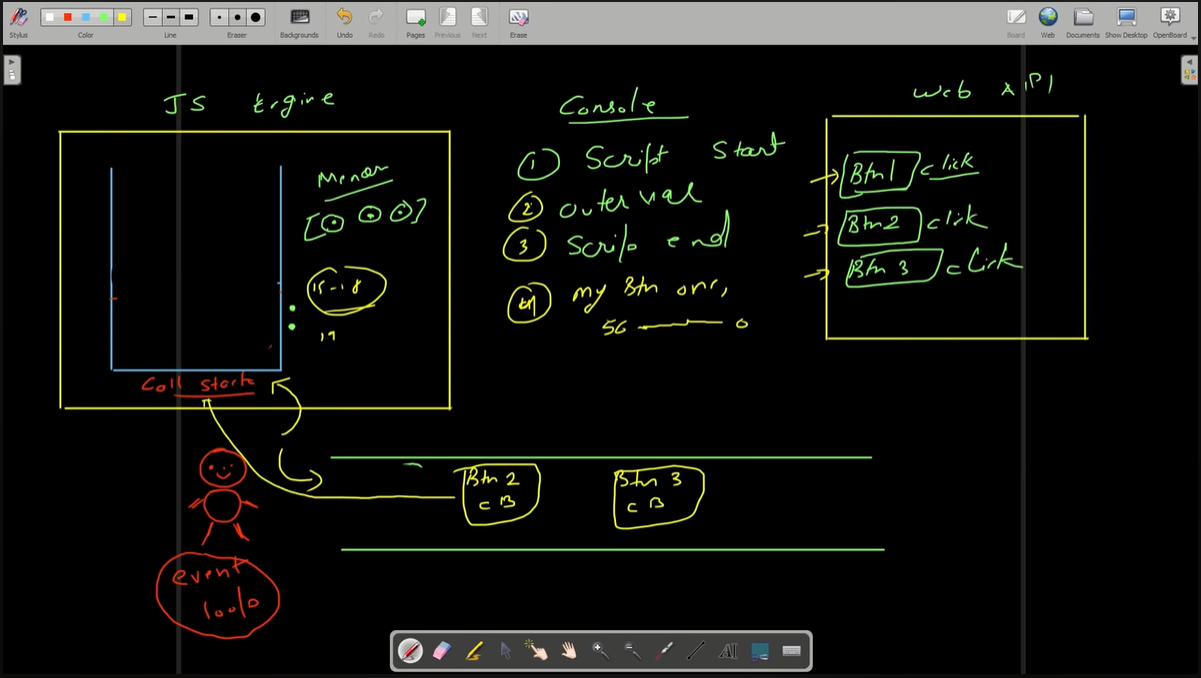 Stylus
Color
Line
Eraser
Backgrounds
Undo
Redo
Pages
Previous
Next
Erase
Board
Web
Documents
Show Desktop
OpenBoard
JS Engine
Console
Web API
① Script Start
② outer val
③ Scrip end
④ my Btn one,
50 0
15-18
19
Call stack
Btn1 click
Btn2 click
Btn 3 click
Btn 2
CB
Btn 3
CB
event
loop